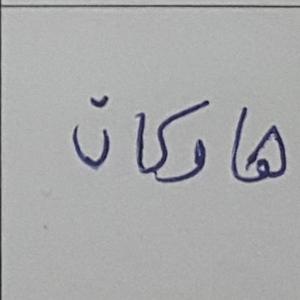 هاوكان